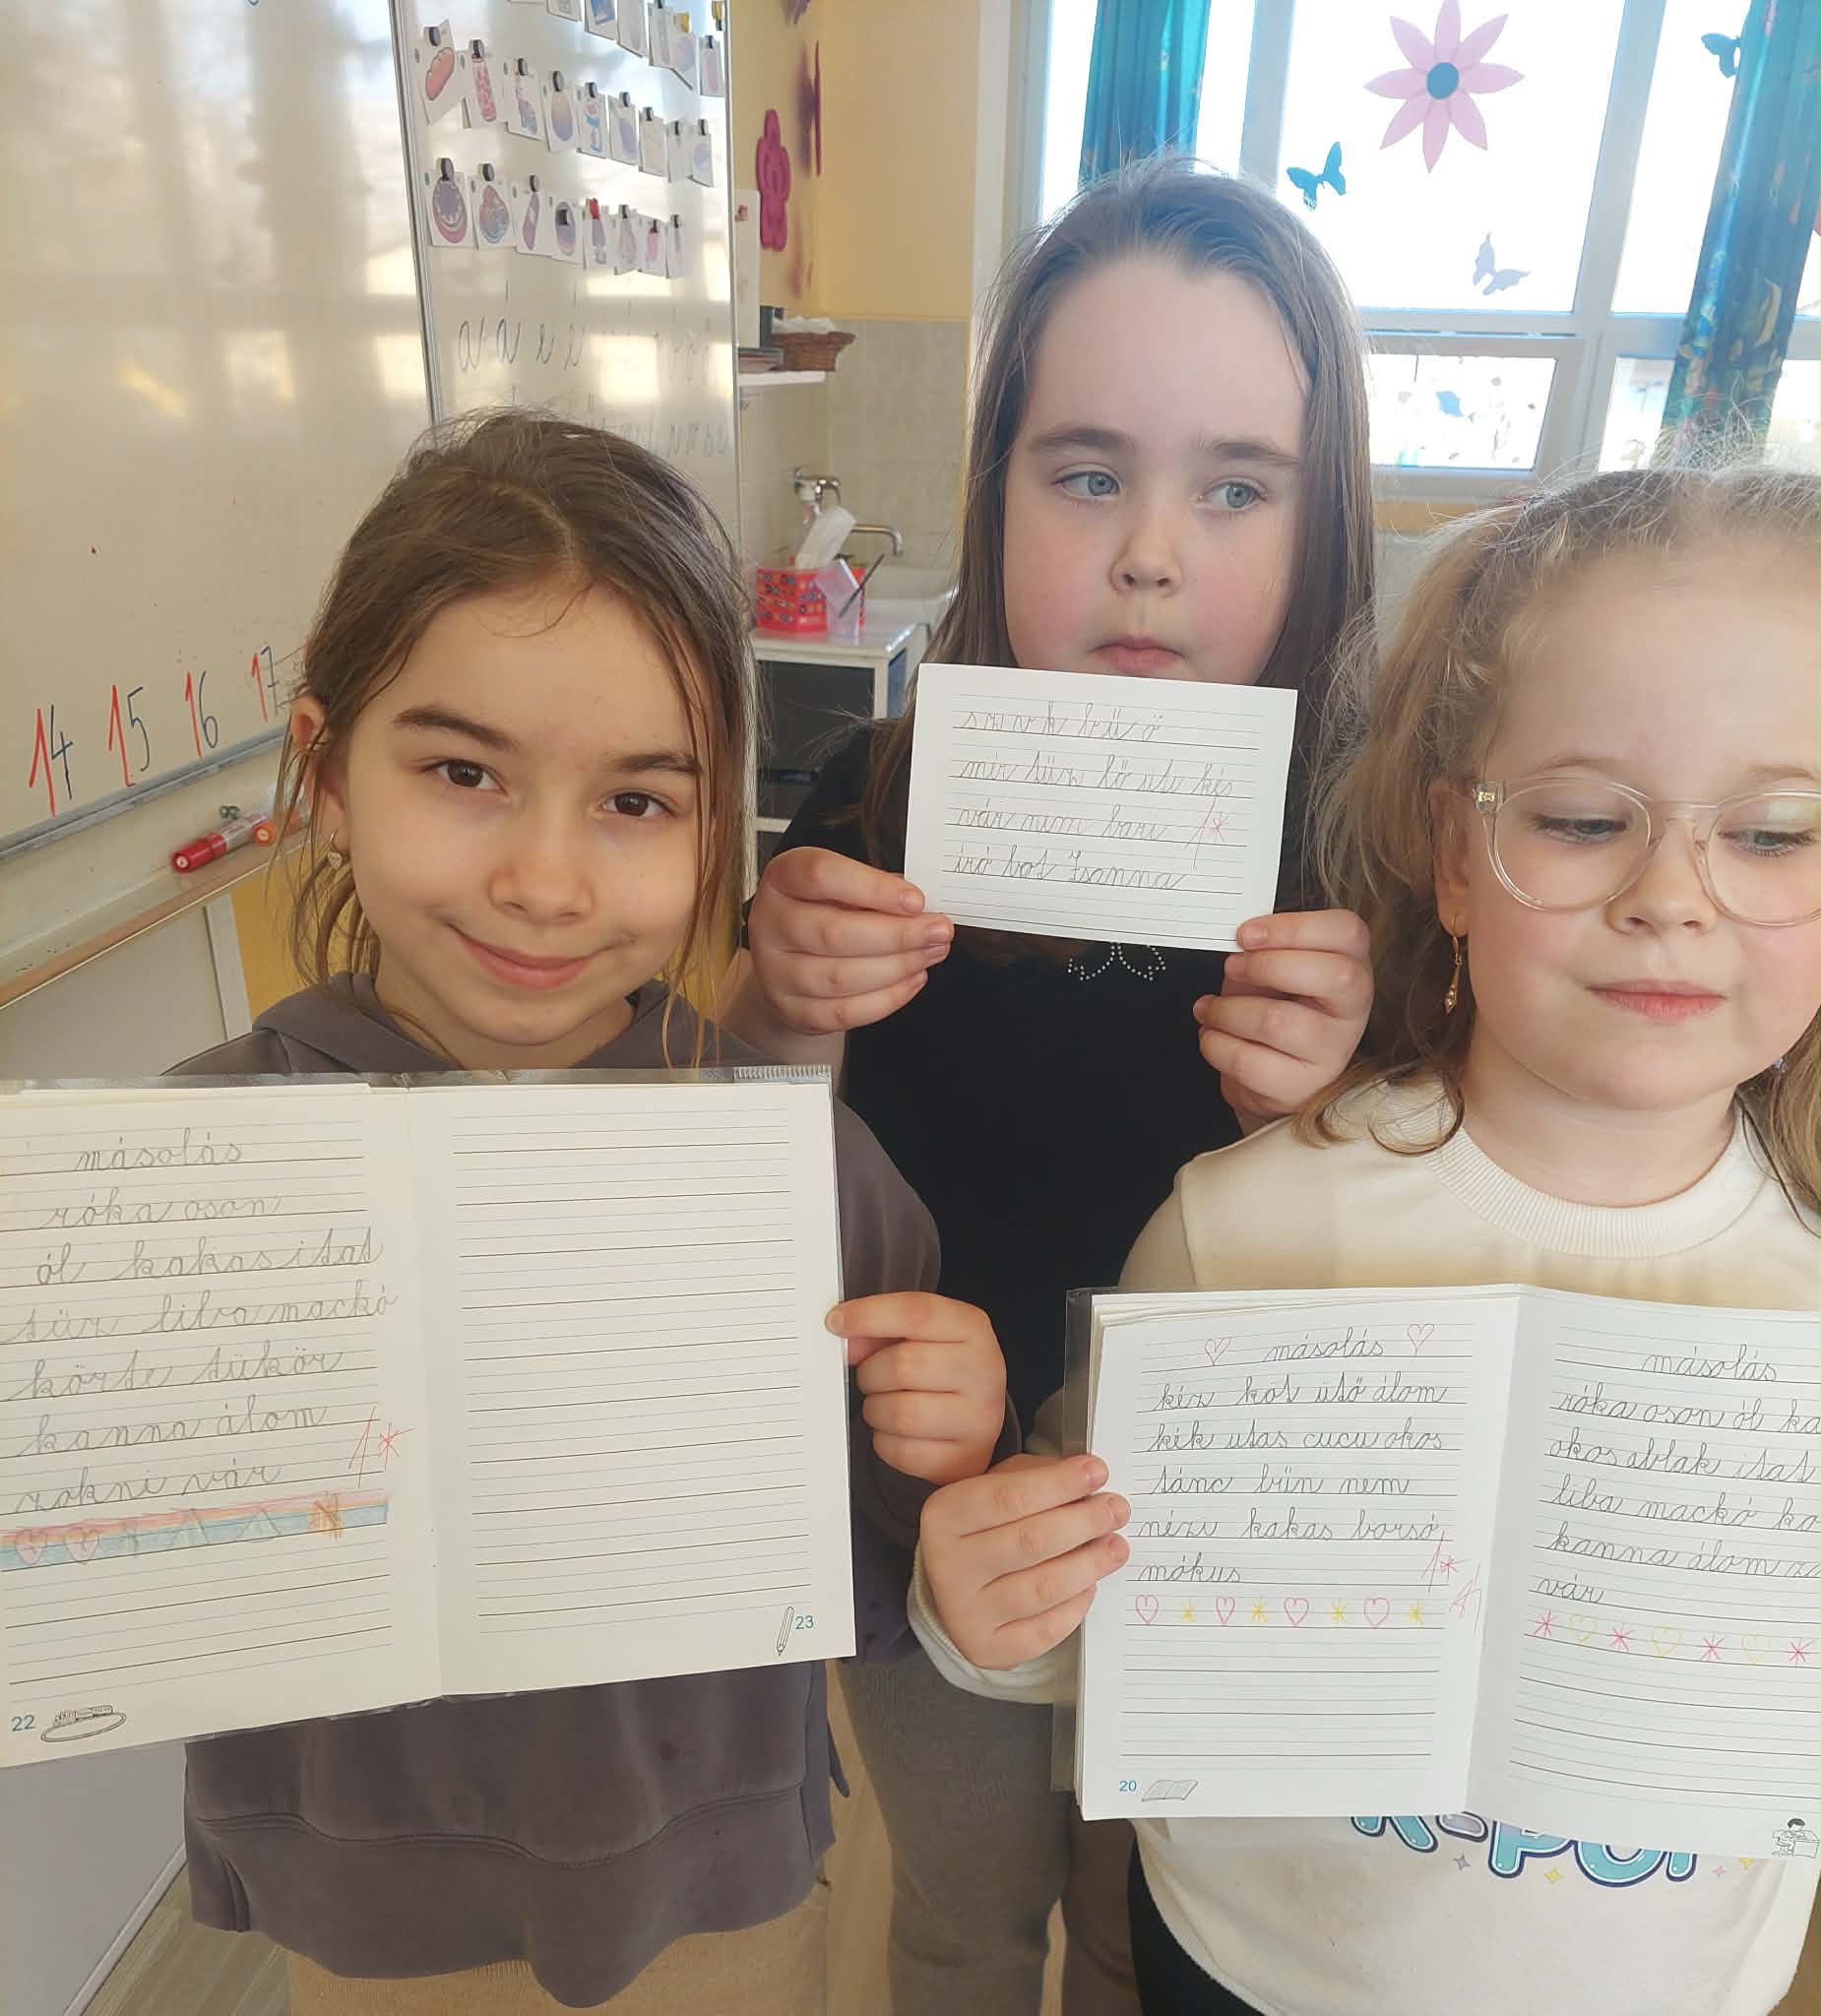 14 15 16 17
a á e é
sz v k b ü ö
mér tűz kő üt kés
vár nem bari 1*
író bot Zsanna
másolás
róka oson
ól kakas itat
tűz liba mackó
körte tükör
kanna álom
zokni vár
1*
22
23
másolás
kéz kót ütő álom
kék utas cucu okos
tánc bűn nem
néz kakas borsó,
mókus
1*
20
másolás
róka oson ól ka
okos ablak itat
liba mackó kö
kanna álom
vár
K-POP